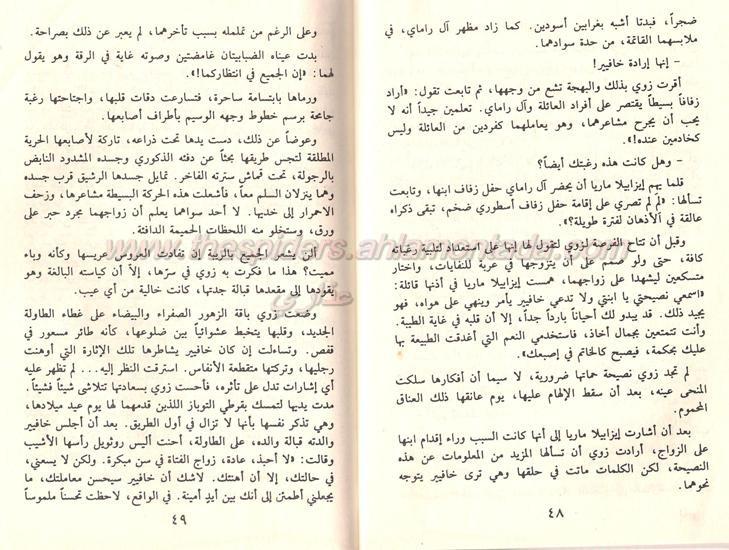 ضجراً، فبدتا أشبه بغرابين أسودين. كما زاد مظهر آل راماي، في
ملابسهما القاتمة، من حدة سوادهما.
- إنها إرادة خافيير!
أقرت زوي بذلك والبهجة تشع من وجهها، ثم تابعت تقول: «أراد
زفافاً بسيطاً يقتصر على أفراد العائلة وآل راماي. تعلمين جيداً أنه لا
يحب أن يجرح مشاعرهما، وهو يعاملهما كفردين من العائلة وليس
كخادمين عنده!».
- وهل كانت هذه رغبتك أيضاً؟
قلما يهم إيزابيلا ماريا أن يحضر آل راماي حفل زفاف ابنها، وتابعت
تسألها: «لمَ لم تصري على إقامة حفل زفاف أسطوري ضخم، تبقى ذكراه
عالقة في الأذهان لفترة طويلة؟».
وقبل أن تتاح الفرصة لزوي لتقول لها إنها على استعداد لتلبية رغباته
كافة، حتى ولو صمم على أن يتزوجها في عربة للنفايات، واختار
متسكعين ليشهدا على زواجهما، همست إيزابيلا ماريا في أذنها قائلة:
«اسمعي نصيحتي يا ابنتي ولا تدعي خافيير يأمر وينهي على هواه، فهو
يجيد ذلك. قد يبدو لك أحياناً بارداً جداً، إلا أن قلبه في غاية الطيبة.
وأنت تتمتعين بجمال أخاذ، فاستخدمي النعم التي أغدقت الطبيعة بها
عليك بحكمة، فيصبح كالخاتم في إصبعك».
لم تجد زوي نصيحة حماتها ضرورية، لا سيما أن أفكارها سلكت
المنحى عينه، بعد أن سقط الإلهام عليها، يوم عانقها ذلك العناق
المحموم.
بعد أن أشارت إيزابيلا ماريا إلى أنها كانت السبب وراء إقدام ابنها
على الزواج، أرادت زوي أن تسألها المزيد من المعلومات عن هذه
النصيحة، لكن الكلمات ماتت في حلقها وهي ترى خافيير يتوجه
نحوهما.
٤٨
وعلى الرغم من تململه بسبب تأخرهما، لم يعبر عن ذلك بصراحة.
بدت عيناه الضبابيتان غامضتين وصوته غاية في الرقة وهو يقول
لهما: «إن الجميع في انتظاركما!».
ورماها بابتسامة ساحرة، فتسارعت دقات قلبها، واجتاحتها رغبة
جامحة برسم خطوط وجهه الوسيم بأطراف أصابعها.
وعوضاً عن ذلك، دست يدها تحت ذراعه، تاركة لأصابعها الحرية
المطلقة لتجس طريقها بحثاً عن دفئه الذكوري وجسده المشدود النابض
بالرجولة، تحت قماش سترته الفاخر. تمايل جسدها الرشيق قرب جسده
وهما ينزلان السلم معاً، فأشعلت هذه الحركة البسيطة مشاعرها، وزحف
الاحمرار إلى خديها. لا أحد سواهما يعلم أن زواجهما مجرد حبر على
ورق، وستخلو منه اللحظات الحميمة الدافئة.
ألن يشعر الجميع بالريبة إن تفادت العروس عريسها وكأنه وباء
مميت؟ هذا ما فكرت به زوي في سرّها، إلا أن كياسته البالغة وهو
يقودها إلى مقعدها قبالة جدتها، كانت خالية من أي عيب.
وضعت زوي باقة الزهور الصفراء والبيضاء على غطاء الطاولة
الجديد، وقلبها يتخبط عشوائياً بين ضلوعها، كأنه طائر مسعور في
قفص. وتساءلت إن كان خافيير يشاطرها تلك الإثارة التي أوهنت
رجليها، وتركتها متقطعة الأنفاس. استرقت النظر إليه... لم تظهر عليه
أي إشارات تدل على تأثره، فأحست زوي بسعادتها تتلاشى شيئاً فشيئاً.
مدت يديها لتمسك بقرطي التوباز اللذين قدمهما لها يوم عيد ميلادها،
وهي تذكر نفسها بأنها لا تزال في أول الطريق. بعد أن أجلس خافيير
والدته قبالة والده، على الطاولة، أحنت أليس روثويل رأسها الأشيب
وقالت: «لا أحبذ، عادة، زواج الفتاة في سن مبكرة. ولكن لا يسعني،
في حالتك، إلا أن أهنئك. لاشك أن خافيير سيحسن معاملتك، ما
يجعلني أطمئن إلى أنك بين أيدٍ أمينة. في الواقع، لاحظت تحسناً ملموساً
٤٩
www.thespiders.ahlamontada.com